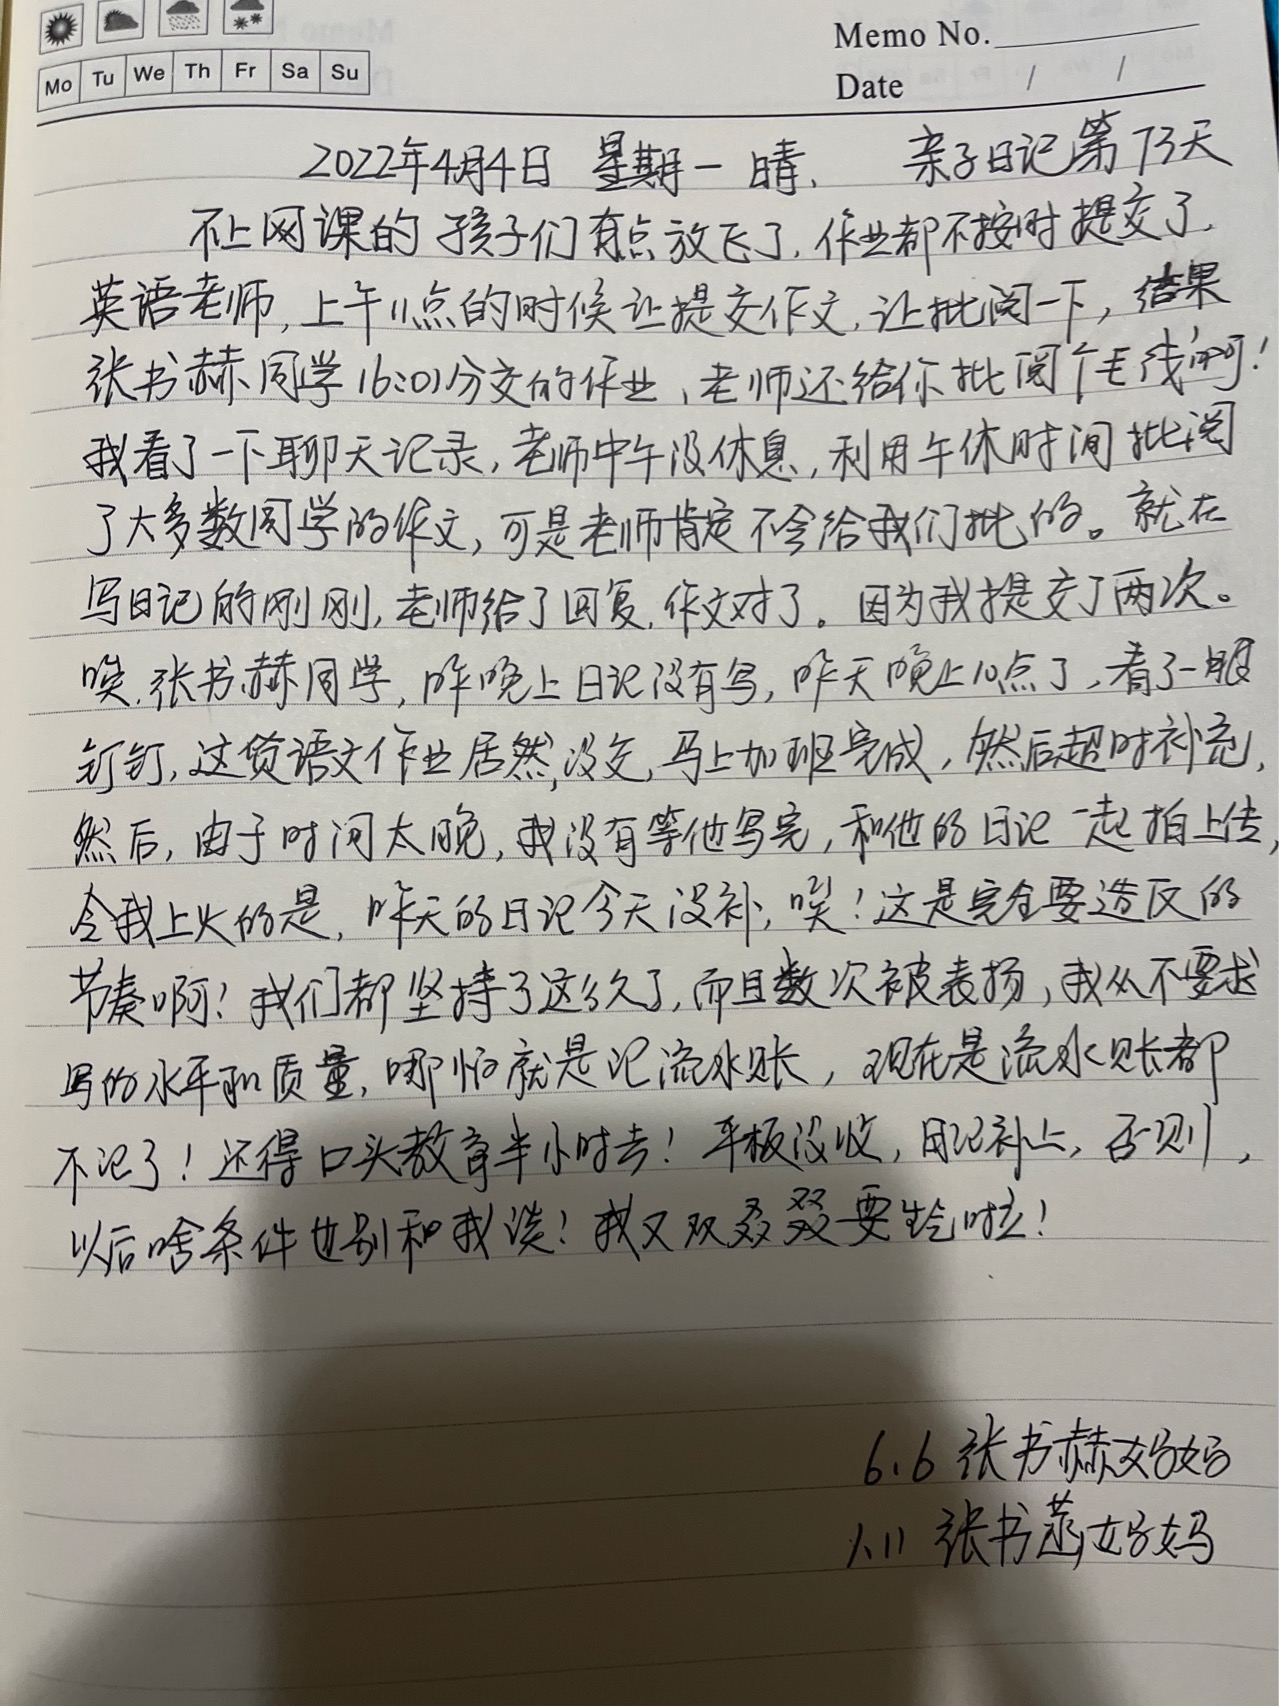 Memo No.
Mo Tu We Th Fr Sa Su
Date / /
2022年4月4日 星期一 晴. 亲子日记第73天
不上网课的孩子们有点放飞了,作业都不按时提交了.
英语老师,上午11点的时候让提交作文,让批阅一下,结果
张书赫同学16:01分交的作业,老师还给你批阅个毛线啊!
我看了一下聊天记录,老师中午没休息,利用午休时间批阅
了大多数同学的作文,可是老师肯定不会给我们批的。就在
写日记的刚刚,老师给了回复,作文对了。因为我提交了两次。
唉,张书赫同学,昨晚上日记没有写,昨天晚上10点了,看了一眼
钉钉,这货语文作业居然没交,马上加班完成,然后超时补充,
然后,由于时间太晚,我没有等他写完,和他的日记一起拍上传,
令我上火的是,昨天的日记今天没补,唉!这是完全要造反的
节奏啊!我们都坚持了这么久了,而且数次被表扬,我从不要求
写的水平和质量,哪怕就是记流水账,现在是流水账都
不记了!还得口头教育半小时去!平板没收,日记补上,否则,
以后啥条件也别和我谈!我又双叒叕要生气啦!
6.6 张书赫妈妈
1.11 张书菡妈妈